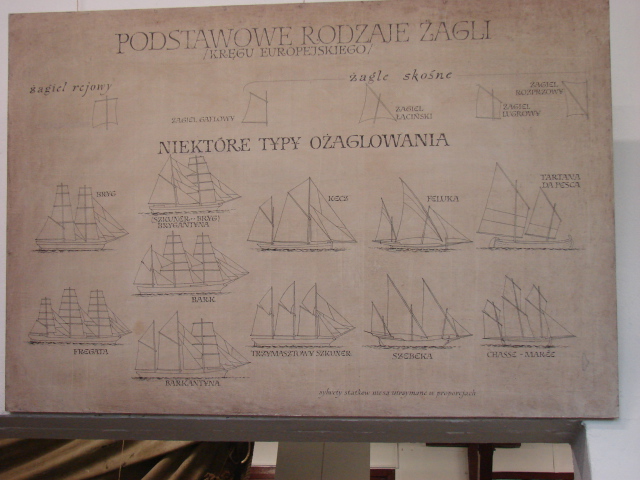 PODSTAWOWE RODZAJE ŻAGLI
/KRĘGU EUROPEJSKIEGO/
żagiel rejowy
żagle skośne
ŻAGIEL GAFLOWY
ŻAGIEL
ŁACIŃSKI
ŻAGIEL
LUGROWY
ŻAGIEL
ROZPRZOWY
NIEKTÓRE TYPY OŻAGLOWANIA
BRYG
(SZKUNER-BRYG)
BRYGANTYNA
KECZ
FELUKA
TARTANA
DA PESCA
FREGATA
BARK
BARKANTYNA
TRZYMASZTOWY SZKUNER
SZEBEKA
CHASSE-MARÉE
sylwety statków nie są utrzymane w proporcjach